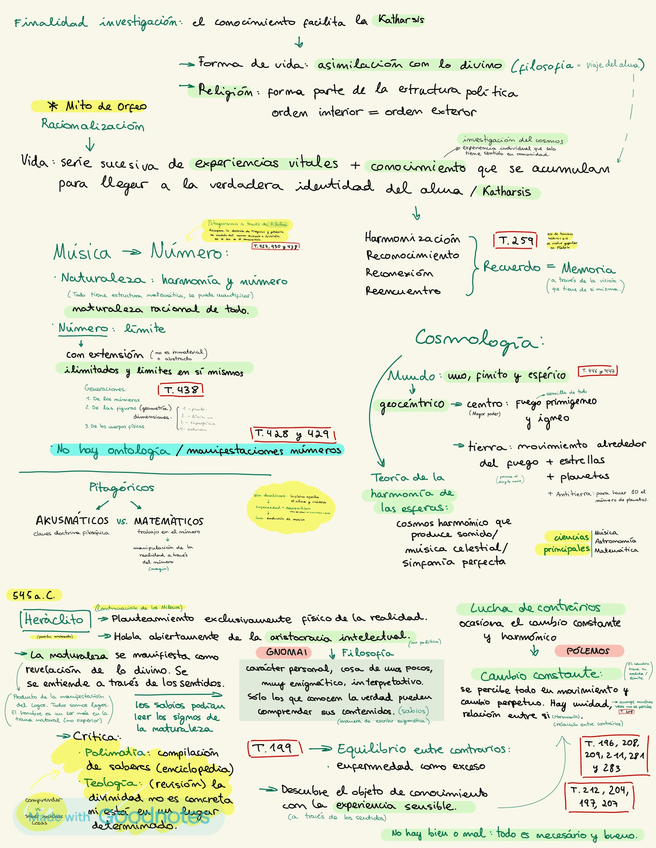 Finalidad investigación: el conocimiento facilita la Katharsis
Forma de vida: asimilación con lo divino (filosofía = viaje del alma)
Religión: forma parte de la estructura política
orden interior = orden exterior
* Mito de Orfeo
Racionalización
investigación del cosmos
experiencia individual que solo
tiene sentido en comunidad.
Vida: serie sucesiva de experiencias vitales + conocimiento que se acumulan
para llegar a la verdadera identidad del alma / Katharsis
Harmonización
Reconocimiento
Reconexión
Reencuentro
T. 259
Recuerdo = Memoria
(a través de la
que tiene de sí misma)
Música → Número:
T. 427, 430 y 438
· Naturaleza: harmonía y número
(Todo tiene estructura matemática, se puede cuantificar)
naturaleza racional de todo.
· Número: límite
con extensión (no es inmaterial
o abstracto
ilimitados y límites en sí mismos
Generaciones:
T. 438
1. De los números
2. De las figuras (geometría)
dimensiones
3. De los cuerpos físicos
T. 428 y 429
No hay ontología / manifestaciones números
Cosmología:
Mundo: uno, finito y esférico
T. 446 y 447
semilla de todo
geocéntrico → centro: fuego primigeneo
(Mayor poder)
y ígneo
tierra: movimiento alrededor
del fuego + estrellas
+ planetas
+ Antitierra: para hacer 10 el
número de planetas.
Teoría de la
harmonía de
las esferas:
cosmos harmónico que
produce sonido/
música celestial/
sinfonía perfecta
ciencias
principales
Música
Astronomía
Matemática
Pitagóricos
AKUSMÁTICOS vs. MATEMÁTICOS
claves doctrina filosófica
trabajo en el número
manipulación de la
realidad a través
del número
(magia)
545 a.C.
(Continuación de los Milesios)
Heráclito
→ Planteamiento exclusivamente físico de la realidad.
→ Habla abiertamente de la aristocracia intelectual.
(no política)
→ La naturaleza se manifiesta como
revelación de lo divino. Se
se entiende a través de los sentidos.
Producto de la manifestación
del Logos. Todos somos logos.
El hombre es un ser más en la
trama natural (no superior)
los sabios podrían
leer los signos de
la naturaleza
GNOMAI
Filosofía
carácter personal, cosa de unos pocos,
muy enigmático, interpretativo.
Solo los que conocen la verdad pueden
comprender sus contenidos. (sabios)
(manera de escribir enigmática)
Lucha de contrarios
ocasiona el cambio constante
y harmónico
PÓLEMOS
Cambio constante:
se percibe todo en movimiento y
cambio perpetuo. Hay unidad,
relación entre sí
(Harmonía,
(relación entre contrarios)
→ Crítica:
· Polimatía: compilación
de saberes (enciclopedia)
· Teología: (revisión) la
divinidad no es concreta
ni está en un lugar
determinado.
comprender
T. 199
→ Equilibrio entre contrarios:
· enfermedad como exceso
→ Descubre el objeto de conocimiento
con la experiencia sensible.
(a través de los sentidos)
T. 196, 208,
209, 211, 281
y 283
T. 212, 204,
197, 207
No hay bien o mal: todo es necesario y bueno.
Made with Goodnotes